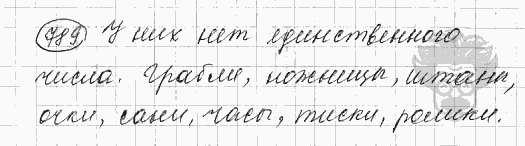 789 У них нет единственного
числа. Грабли, ножницы, штаны,
очки, сани, часы, тиски, ролики.